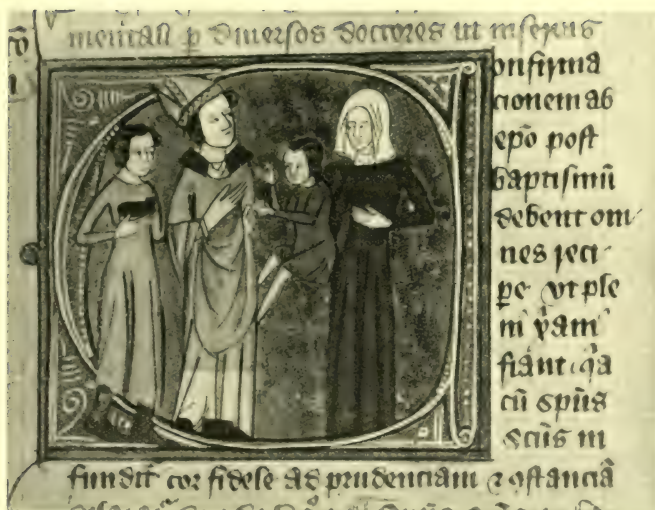 mentali p diuersos doctores ut inferius
onfirma
cionem ab
epo post
baptismu
debent om
nes reci
pe ut ple
ni
fiant
cu spus
scus in
fundit cor fidele ad prudenciam